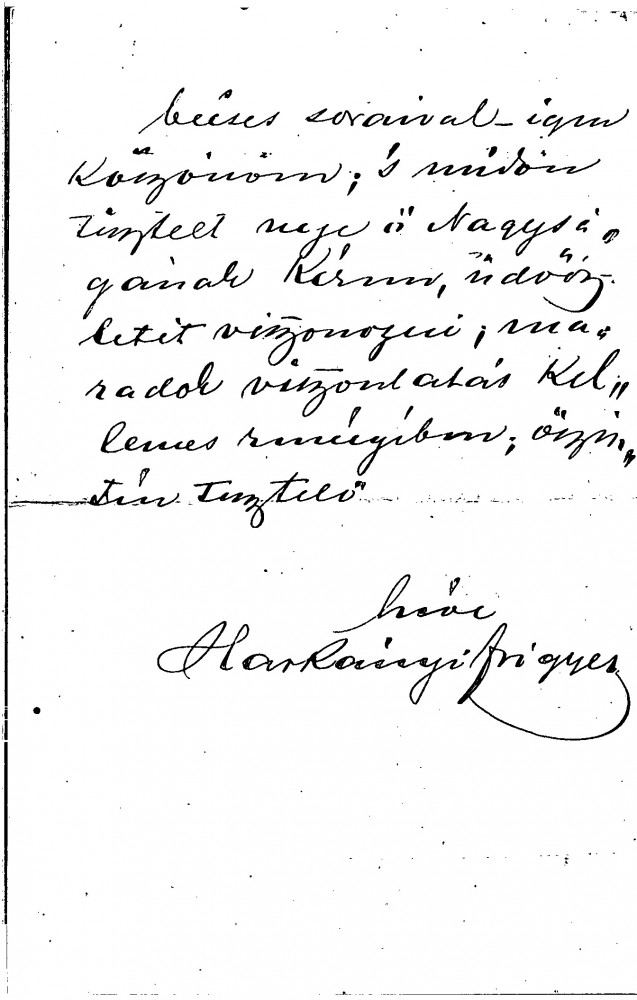 becses soraival – igen
köszönöm; 's midőn
tisztelt neje ő Nagysá„
gának kérem, üdvöz„
letét viszonozni; ma„
radok viszontlatás kel„
lemes reményében; őszin„
tén tisztelő
híve
Harkányi Frigyes